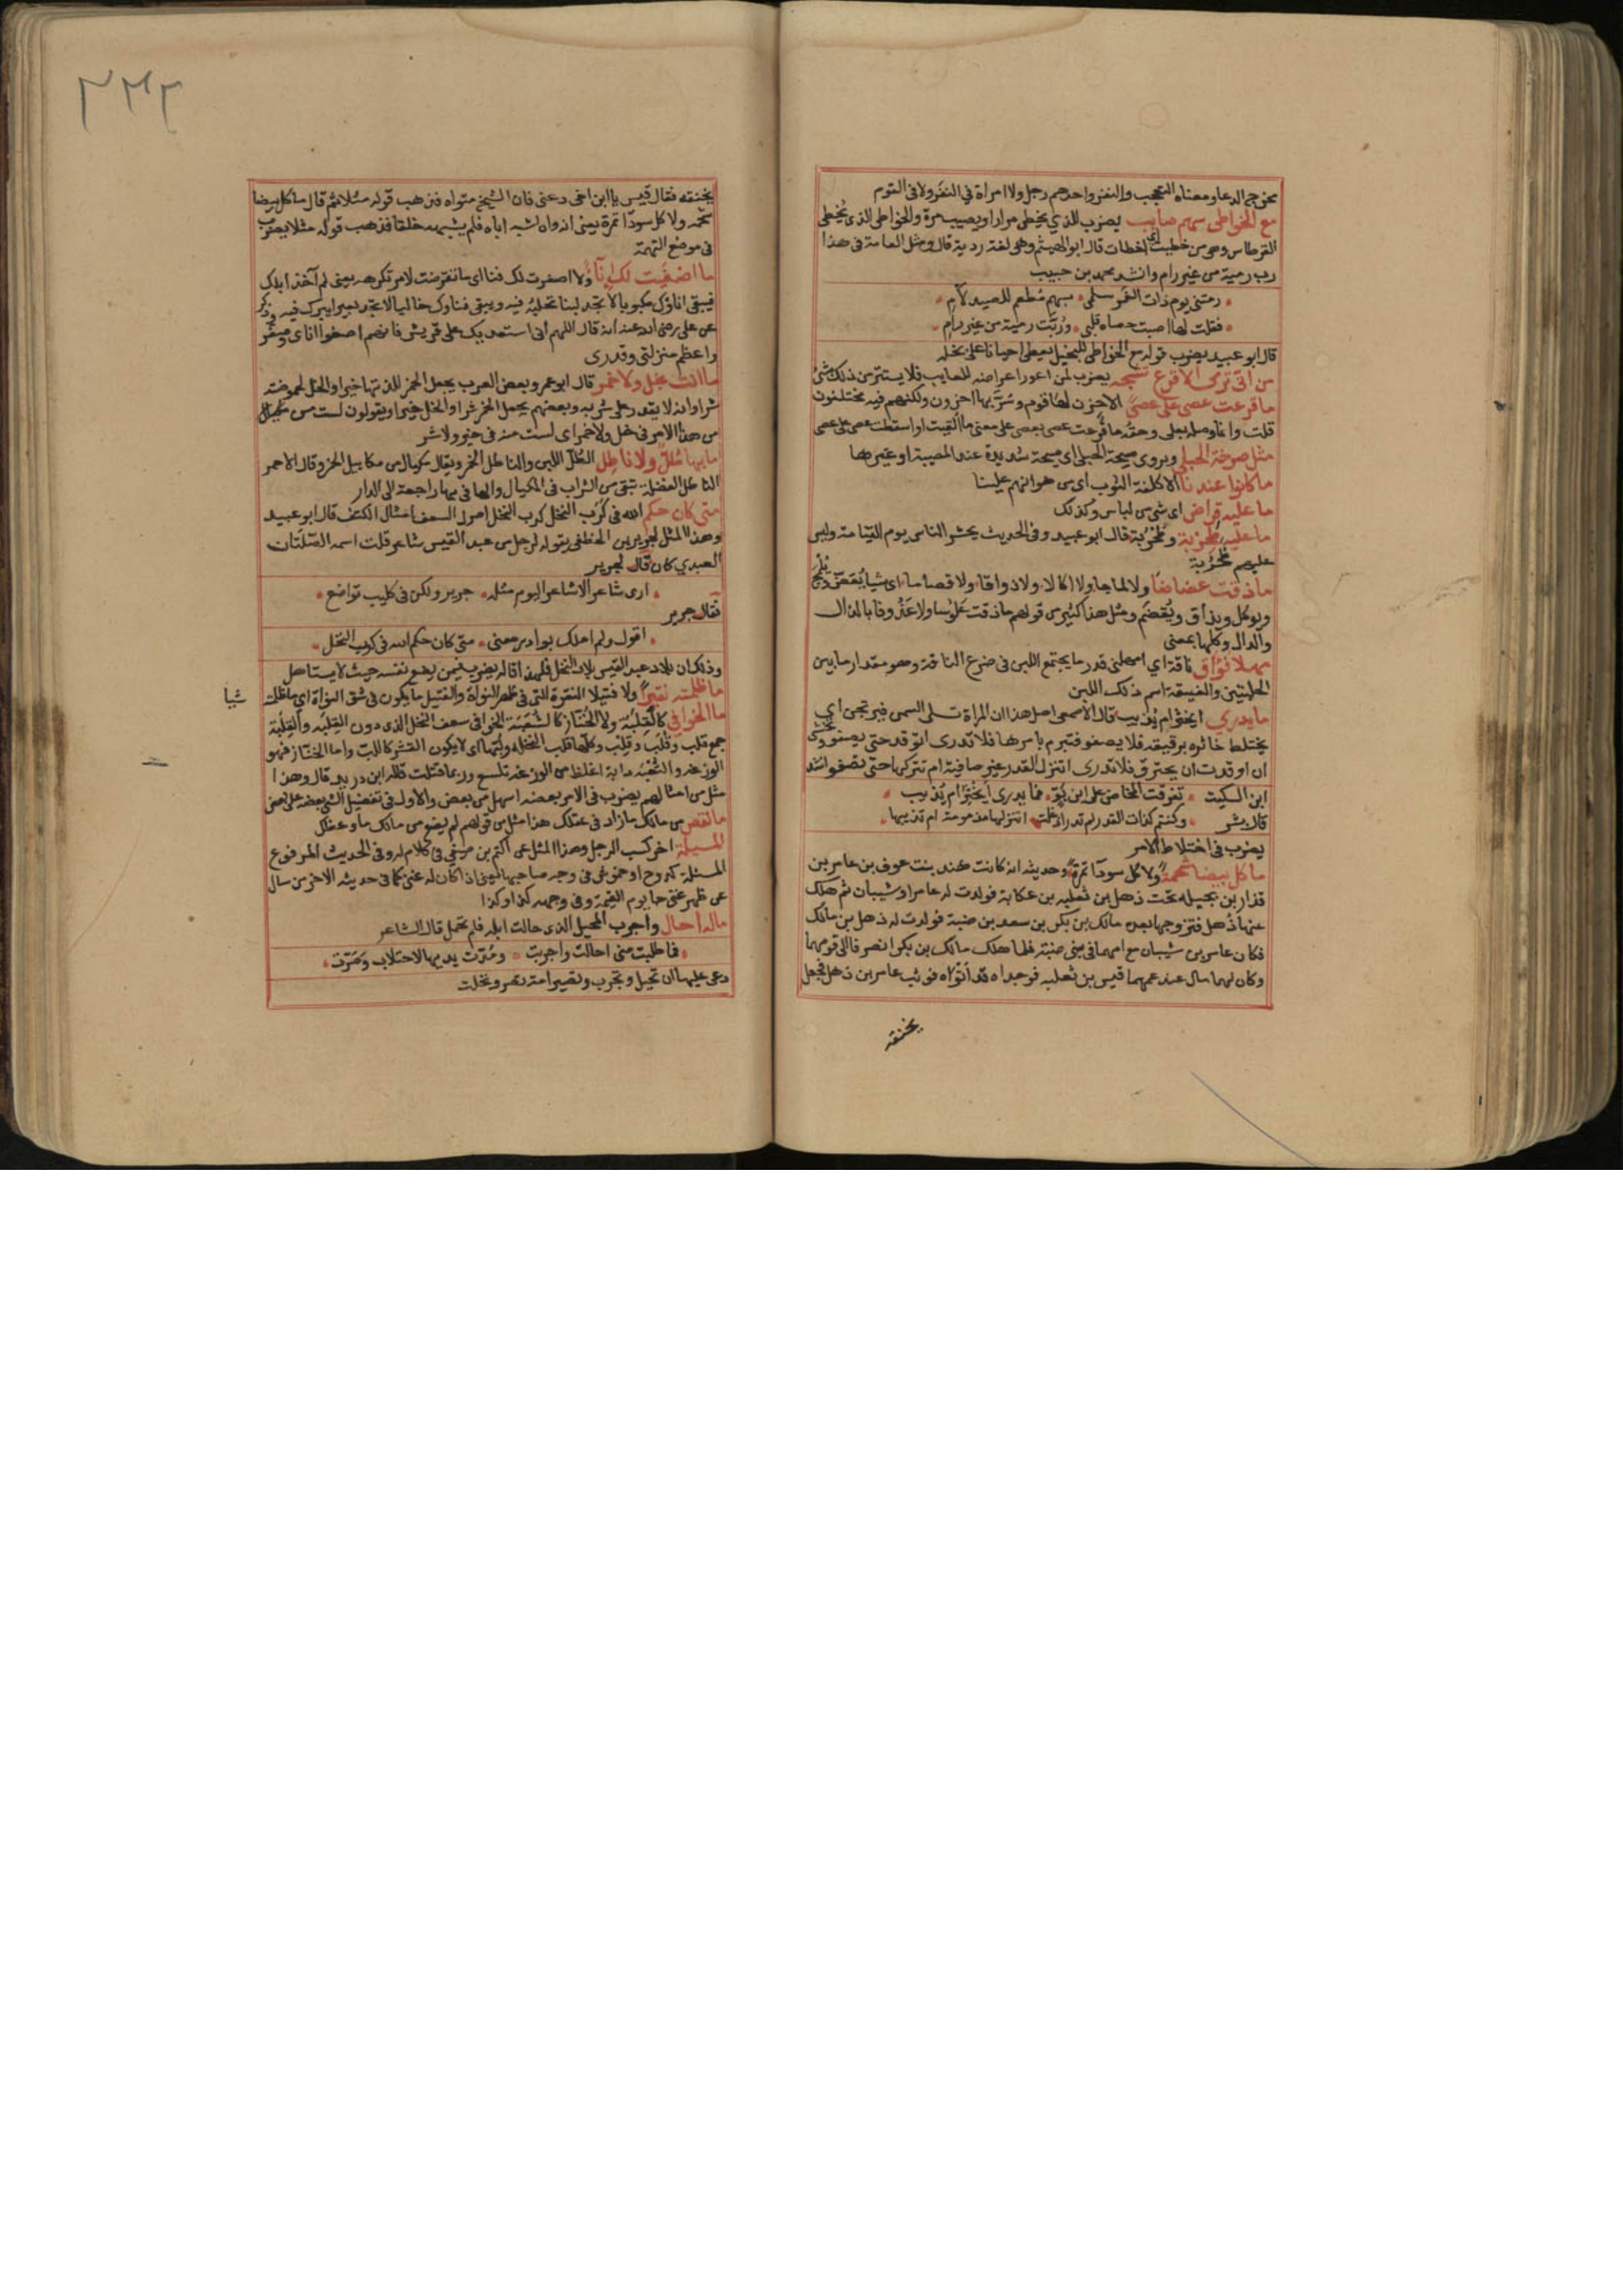 مخرج الدعا ومعناه التعجب والنفر واحدهم رجل ولا امراة فى النفر ولا فى القوم
مع الخواطى سهم صايب يضرب للذي يخطى مرارا ويصيب مرة والخواطى الذى تخطى
القرطاس وهى من خطيت اى اخطات قال ابو الهيثم وهى لغة ردية قال ومثل العامة فى هذا
رب رمية من غير رام وانشد محمد بن حبيب
رمتنى يوم ذات الغمر سلمى بسهم مطعم للصيد لآم
فقلت لها اصبت حصاه قلبى وربت رمية من غير رام
قال ابو عبيد يضرب قوله مع الخواطى للبخيل يعطى احيانا على بخله
من اتى ترمى الاقرع تشجه يضرب لمن اعور اعراضه للعايب فلا يستتر من ذلك شئ
ما قرعت عصى على عصى الا حزن لها قوم وسر بها اخرون ولكنهم فيه مختلفون
قلت وانما وصله بعلى وحقه ما قرعت عصى بعصى على معنى ما القيت او اسقطت عصى على عصى
مثل صرخة الحبلى ويروى صيحة الحبلى اى صيحة شديدة عند المصيبة او غيرها
ما كانوا عندنا الا كلفة الثوب اى من هوانهم علينا
ما عليه قراض اى شى من لباس وكذلك
ما عليه طحربة وطخربة قال ابو عبيد وفى الحديث يحشر الناس يوم القيامة وليس
عليهم طحربة
ما ذقت عضاضا ولا لماجا ولا اكالا ولا ذواقا ولا قضاما اى شيا يعض ويلمج
ويوكل ويذاق ويقضم ومثل هذا كثير من قولهم ما ذقت علوسا ولا عذوفا بالذال
والدال وكلها بمعنى
مهلا فواق ناقة اي امهلنى قدر ما يجتمع اللبن فى ضرع الناقة وهو مقدار ما بين
الحلبتين والفيقة اسم ذلك اللبن
ما يدري ايخثر ام يذيب قال الاصمعى اصل هذا ان المراة تسلى السمن فيرتجن اي
يختلط خاثره برقيقه فلا يصفو فتبرم بامرها فلا تدرى اتوقد حتى يصفو وتخشى
ان اوقدت ان يحترق فلا تدرى اتنزل القدر غير صافية ام تتركها حتى تصفو انشد
ابن السكيت تفرقت المخاض على ابن بو فما يدرى ايخثر ام يذيب
قال بشر وكنتم كذات القدر لم تدر اذ غلت اتنزلها مذمومة ام تذيبها
يضرب فى اختلاط الامر
ما كل بيضا شحمة ولا كل سودآ تمرة وحديثه انه كانت هند بنت عوف بن عامر بن
نزار بن بجيله تحت ذهل بن ثعلبه بن عكابة فولدت له عامرا وشيبان ثم هلك
عنها ذهل فتزوجها بعده مالك بن بكر بن سعد بن ضبة فولدت له ذهل بن مالك
فكان عامر بن شيبان مع امهما فى بنى ضبة فلما هلك مالك بن بكر انصرفا الى قومهما
وكان لهما مال عند عمهما قيس بن ثعلبه فوجداه قد اتواه فوثب عامر بن ذهل فجعل
يخنقه
٢٣٢
يخنقه فقال قيس يا ابن اخى دعنى فان الشيخ متواه فذهب قوله مثلا ثم قال ما كل بيضا
شحمه ولا كل سودا تمرة يعنى انه وان اشبه اباه فلم يشبهه خلقا فذهب قوله مثلا يضرب
فى موضع التهمة
ما اصغيت لك انآ ولا اصفرت لك فنا اى ما تعرضت لامر تكرهه يعنى لم آخذ ابلك
فيبقى اناؤك مكبوبا لا تجد لبنا تحلبه فيه ويبقى فناوك خاليا لا تجد بعيرا يبرك فيه وذكر
عن على رضى الله عنه انه قال اللهم انى استعديك على قريش فانهم اصغوا اناى وصغر
وا عظم منزلتى وقدرى
ما انت بخل ولا خمر قال ابو عمرو بعض العرب يجعل الخمر للذتها خيرا والخل لحموضته
شرا وانه لا يقدر على شربه وبعضهم يجعل الخمر شرا والخل خيرا ويقولون لست من
من هذا الامر فى خل ولا خمر اى لست منه فى خير ولا شر
ما بها طل ولا ناطل الطل اللبن والناطل الخمر ويقال مكيال من مكاييل الخمر وقال الاحمر
الناطل الفضلة تبقى من الشراب فى المكيال والها فى بها راجعة الى الدار
متى كان حكم الله فى كرب النخل كرب النخل اصول السعف امثال الكتف قال ابو عبيد
وهذا المثل لجرير بن الخطفى يقوله لرجل من عبد القيس شاعر قلت اسمه الصلتان
العبدي كان قال لجرير
ارى شاعر الا شاعر اليوم مثله جرير ولكن فى كليب تواضع
فقال جرير
اقول ولم املك بوادر دمعى متى كان حكم الله فى كرب النخل
وذلك ان بلاد عبد القيس بلاد النخل فلهذا قاله يضرب فيمن يضع نفسه حيث لا يستاهل
ما ظلمته نقيرا ولا فتيلا النقرة التى فى ظهر النواة والفتيل ما يكون فى شق النواة اي ما ظلمه
شيا
ما الخوافي كالقلبة ولا الخناز كالثعبة الخوافى سعف النخل الذى دون القلبه والقلبة
جمع قلب وقلب وقلب وكلها قلب النخله ولبها اى لا يكون القشر كاللب واما الخناز فهو
الوزغة والثعبه دابة اغلظ من الوزغة تلسع وربما قتلت قاله ابن دريد قال وهذا
مثل من امثالهم يضرب فى الامر بعضه اسهل من بعض والاول فى تفضيل الشئ بعضه على بعض
ما نقص من مالك ما زاد فى عقلك هذا مثل من قولهم لم يضع من مالك ما وعظك
المسيلة اخر كسب الرجل وهذا المثل عن اكثم بن صيفي فى كلام له وفى الحديث المرفوع
المسئلة كدوح او خموش فى وجه صاحبها يعنى اذا كان له غنى كما فى حديثه الاخر من سال
عن ظهر غنى جا يوم القيمة وفى وجهه كذا وكذا
ماله احال واجرب المحيل الذى حالت ابله فلم تحمل قال الشاعر
فما طلبت منى احالت واجربت ومدت يديها لاحتلاب وصرت
دعى عليها ان تحيل وتجرب وتصير امة تصر وتحلب